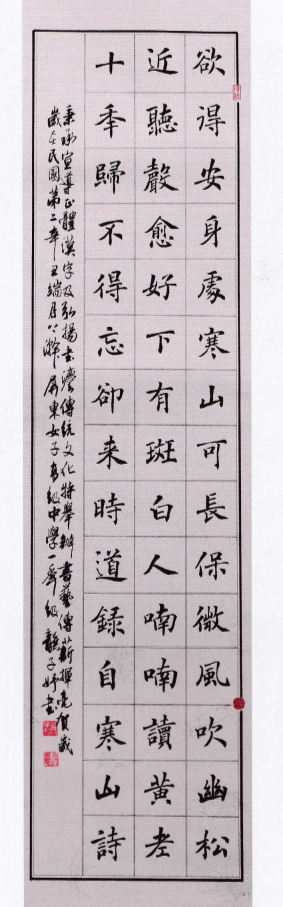 欲得安身處寒山可長保微風吹幽松
近聽聲愈好下有斑白人喃喃讀黃老
十秊歸不得忘卻来時道錄自寒山詩
秉承宣導正體漢字及弘揚書灋傳統文化特舉辦書藝傳薪揮毫賀歲
歲在民國第二辛丑端月屏東女子高級中學一年級龔子妤書